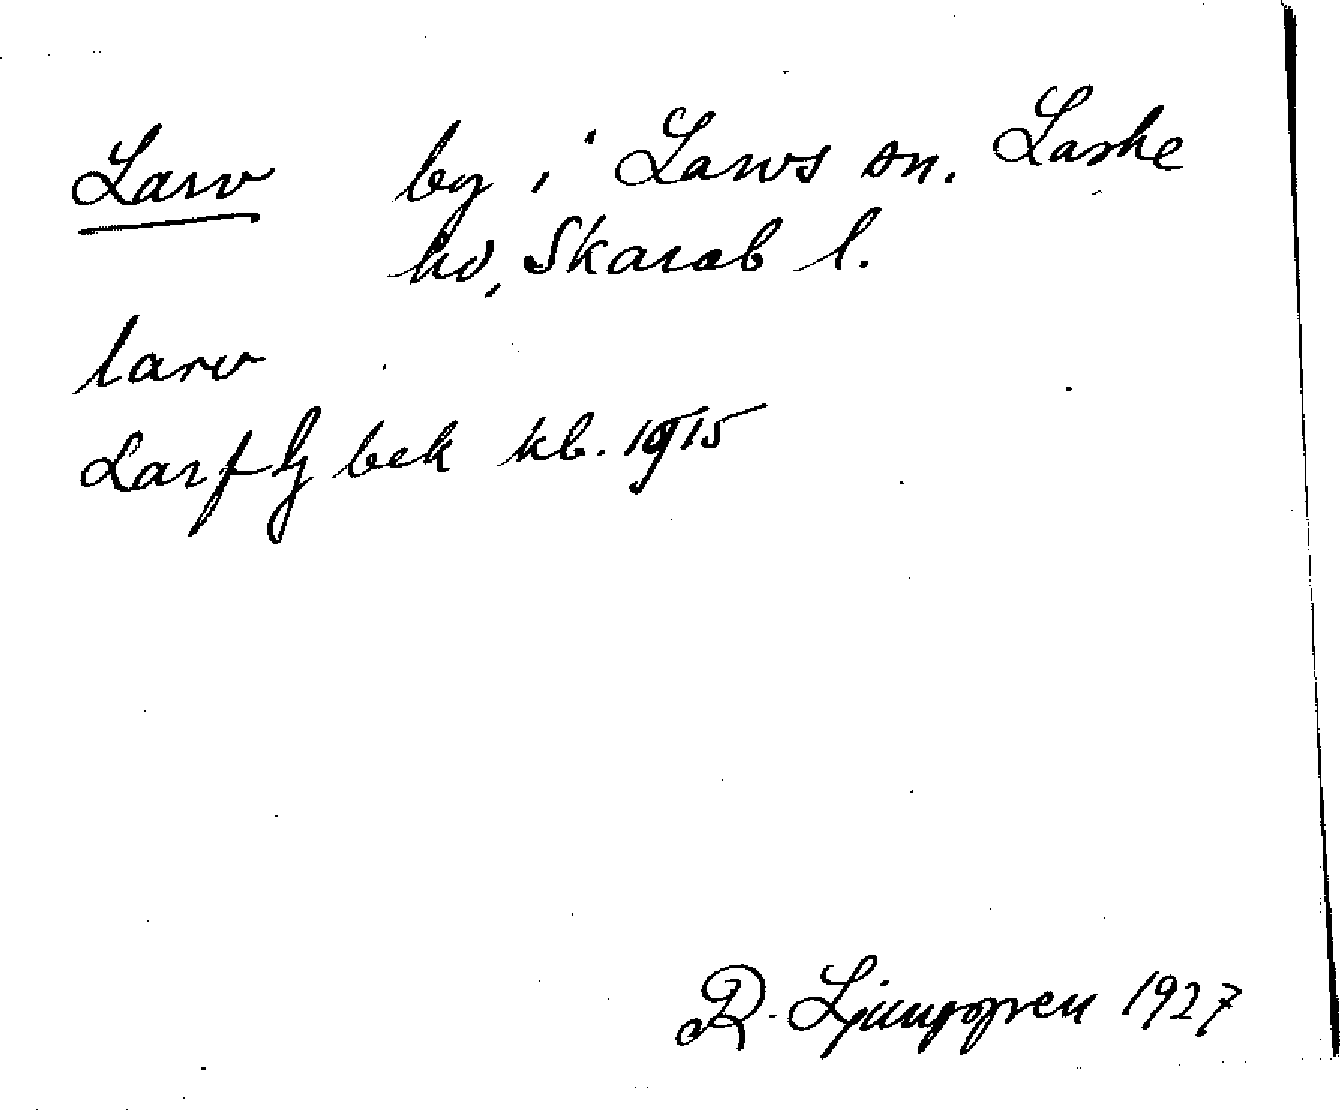 Larv by i Larvs sn. Laske
hd, Skarab l.
larv
Larf bek kb. 1915
R. Ljunggren 1927